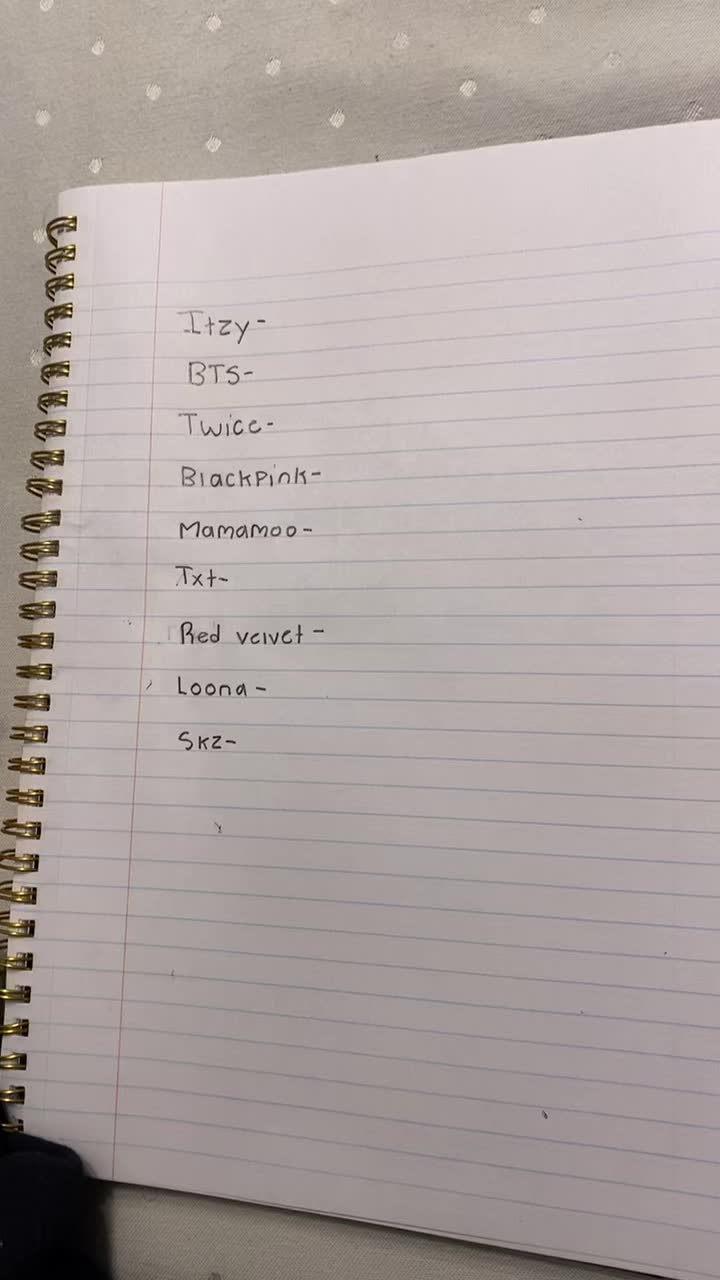 Itzy-
BTS-
Twice-
Blackpink-
Mamamoo-
Txt-
Red velvet-
Loona-
Skz-